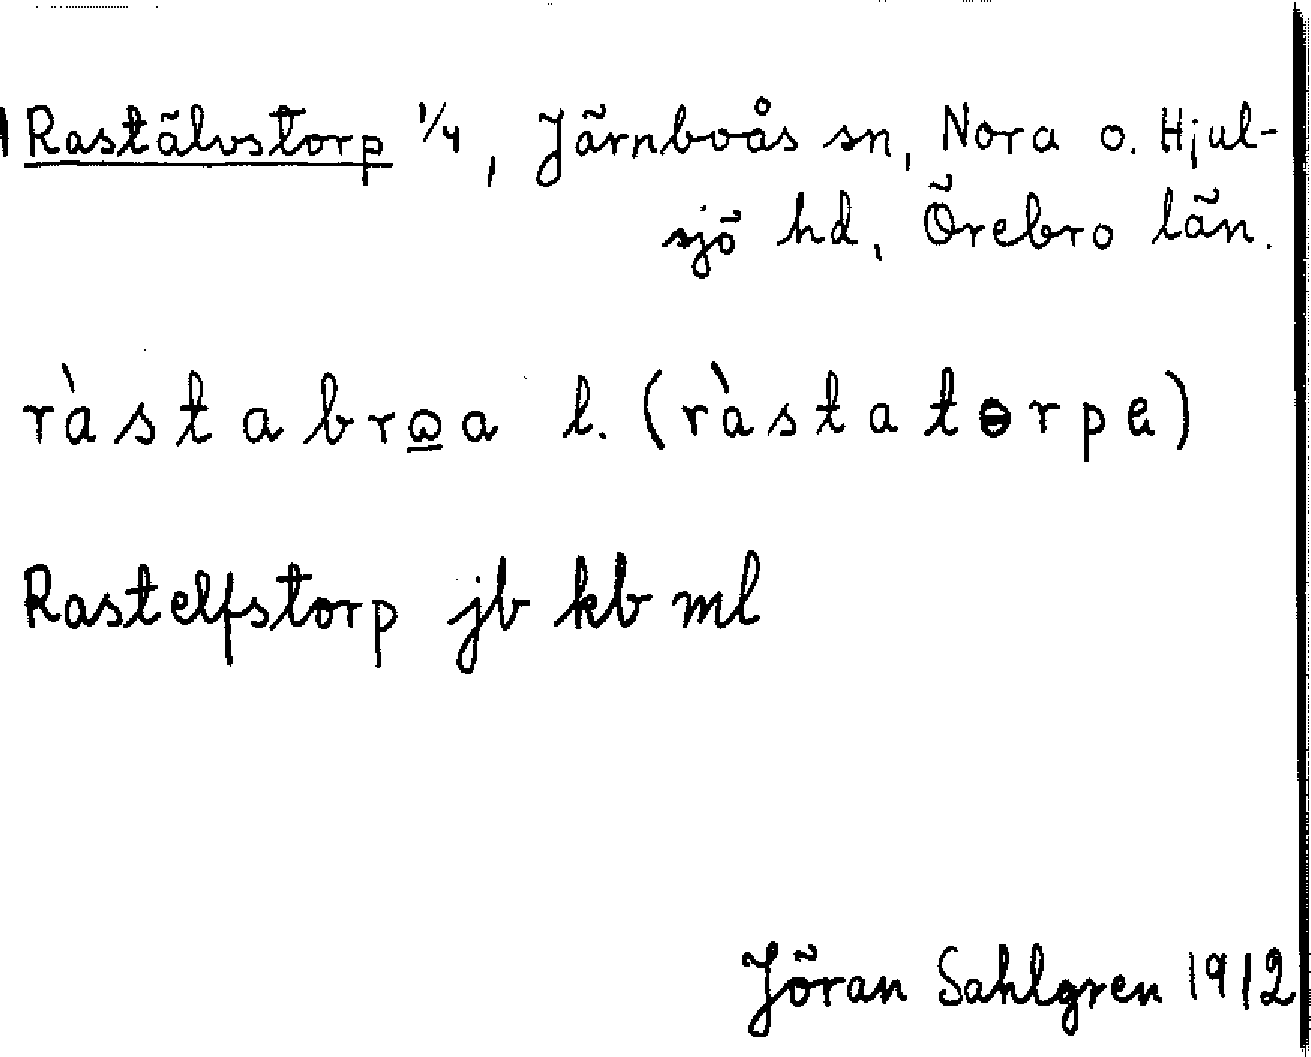 Rastälvstorp 1/4, Järnboås sn, Nora o. Hjul-
sjö hd, Örebro län.
ràstabrɷ̲a l. (ràstatɵrpa)
Rastelfstorp jb kb ml
Jöran Sahlgren 1912